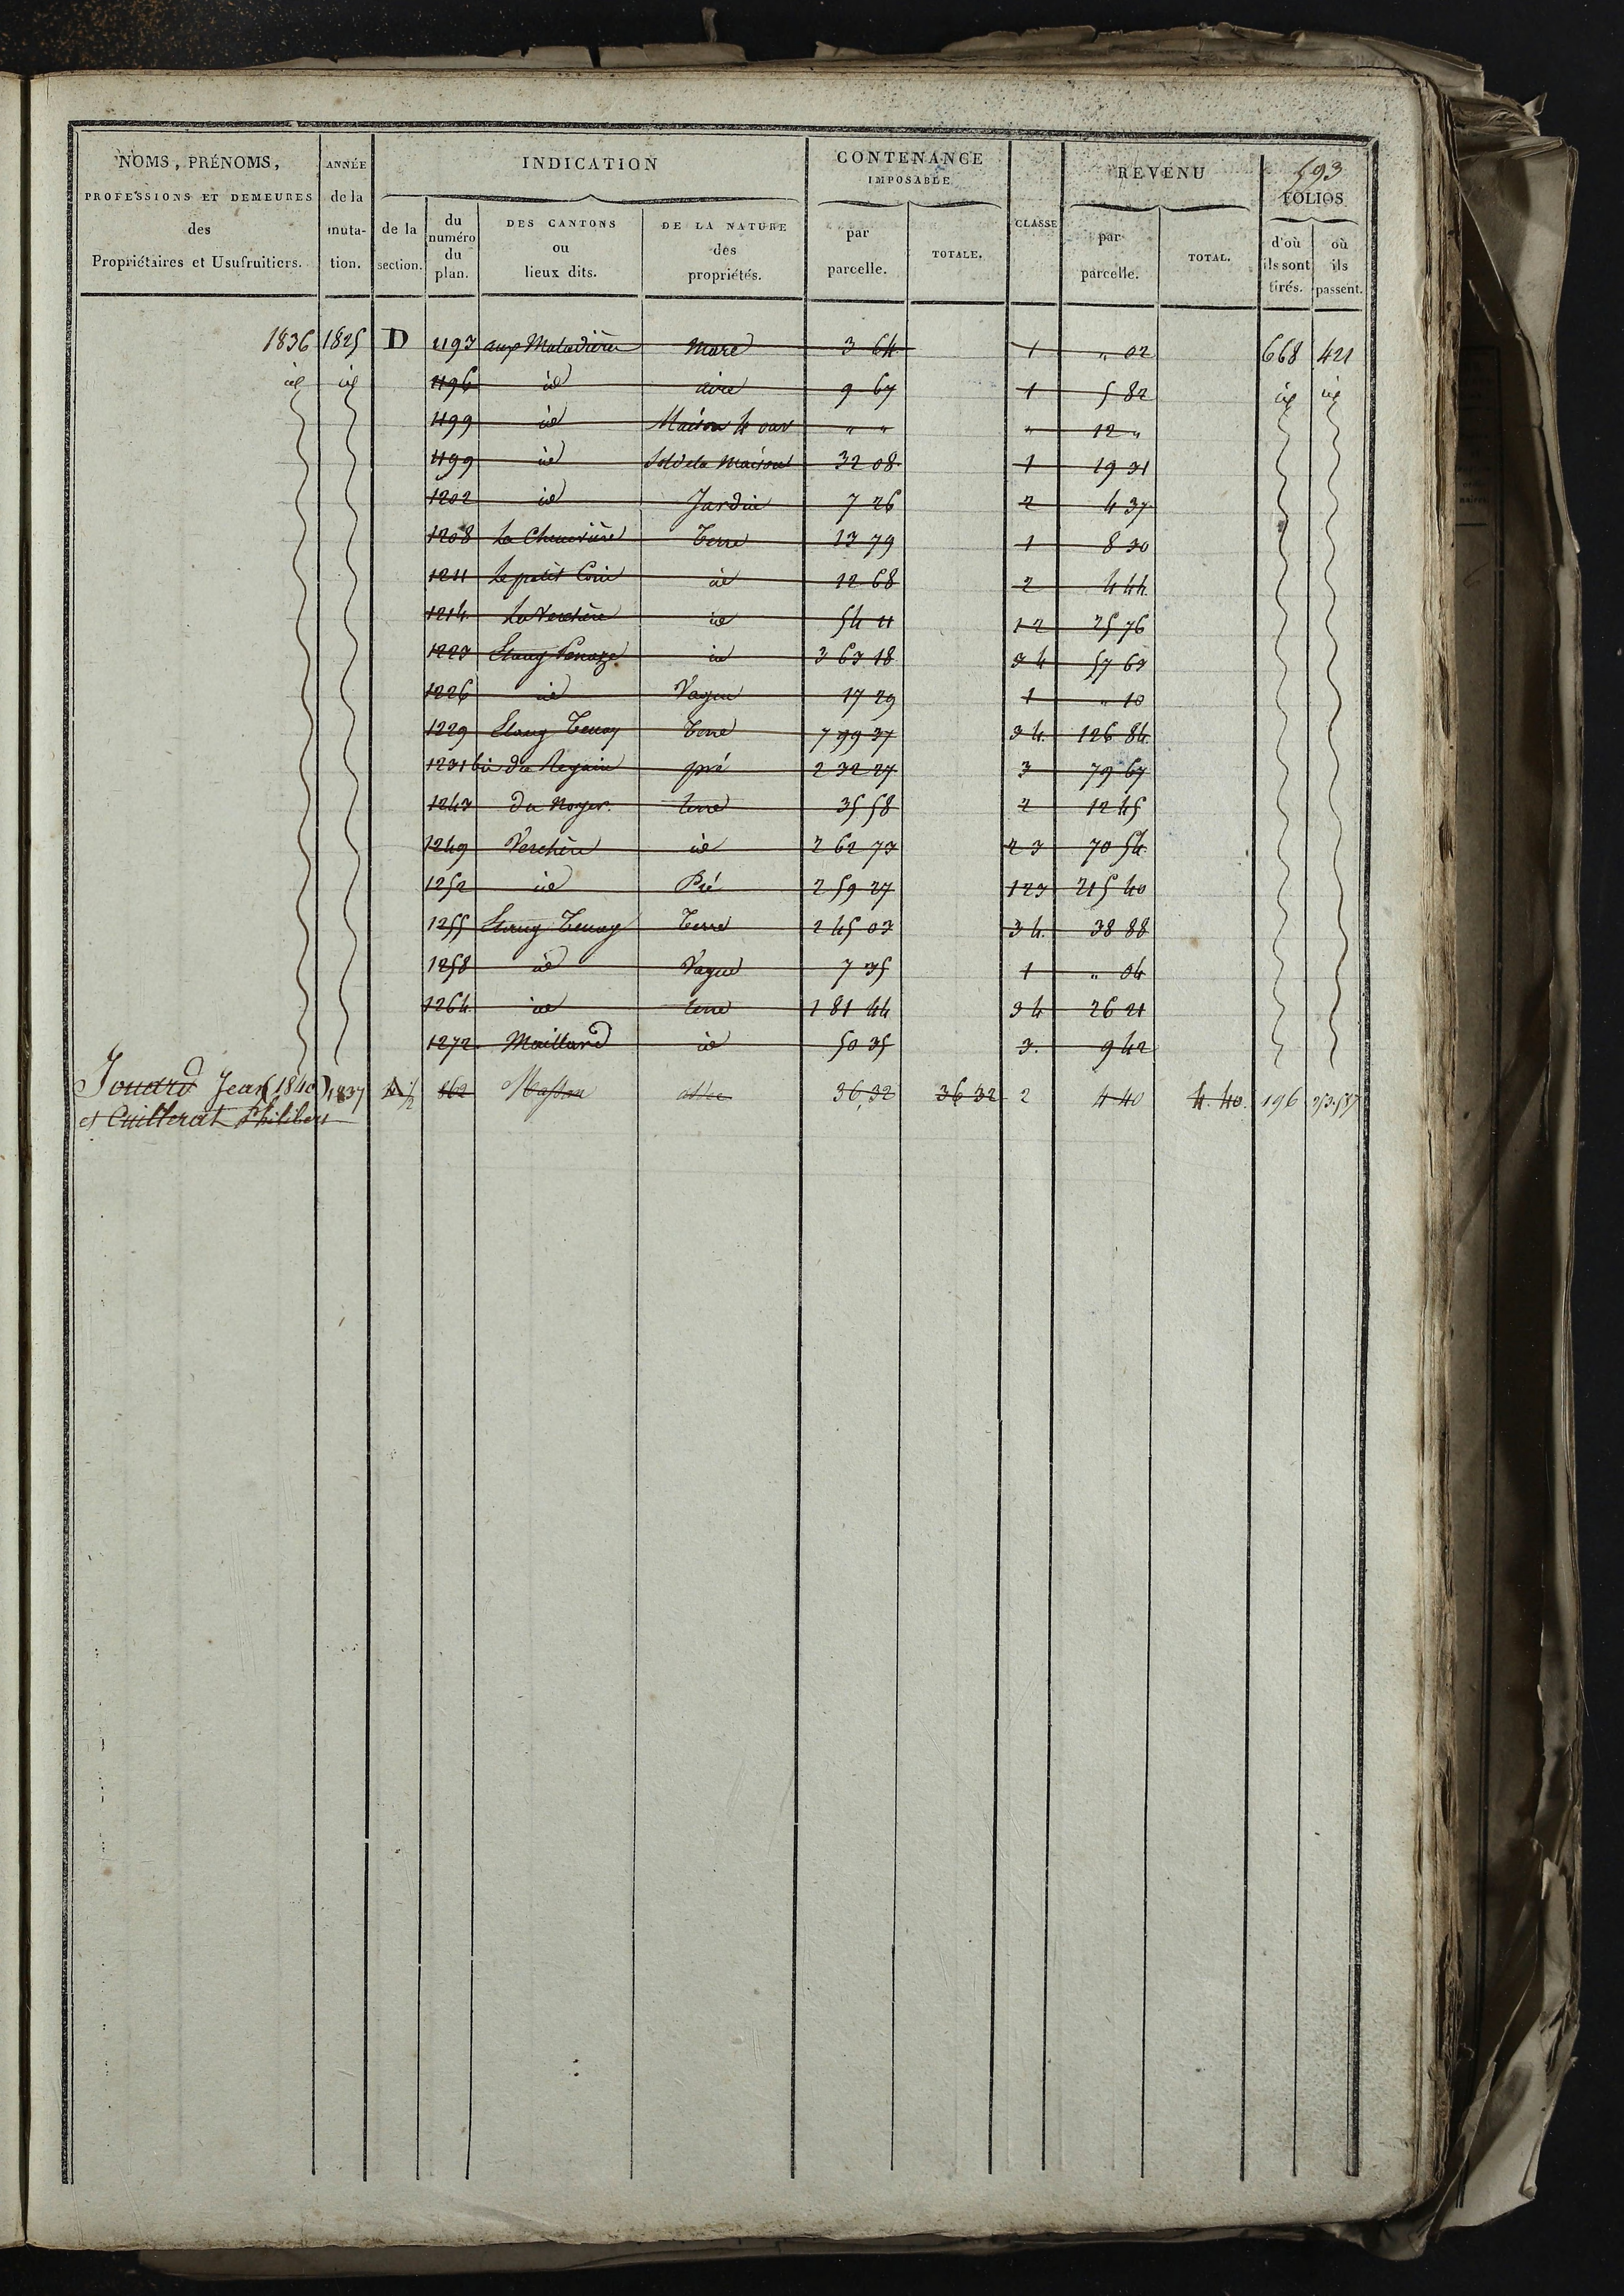 593
NOMS, PRÉNOMS, PROFESSIONS ET DEMEURES des Propriétaires et Usufruitiers.
ANNÉE de la muta- tion.
INDICATION
de la section.
du numéro du plan.
DES CANTONS ou lieux dits.
DE LA NATURE des propriétés.
CONTENANCE IMPOSABLE
par parcelle.
TOTALE.
CLASSE
REVENU
par parcelle.
TOTAL.
FOLIOS
d'où ils sont tirés.
où ils passent.
1836 1825 D 1193 aux Maladières mare 3 64 1 " 02 668 421
id id 1196 id aire 9 67 1 5 82 id id
1199 id Maison 4 ouv " " " 12 "
1199 id Sol de la Maison 32 08 1 19 31
1202 id Jardin 7 26 2 4 37
1208 La Chenevière Terre 13 79 1 8 30
1211 Le petit Coin id 12 68 2 4 44
1214 La Verchère id 54 11 1 2 25 76
1223 Etang id 3 63 18 3 4 57 63
1226 id Vague 17 29 1 " 10
1229 Etang Tenay Terre 7 99 37 3 4 126 84
1231 bis du Regain pré 2 32 27 3 79 67
1243 du Noyer terre 35 58 2 12 45
1249 Verchère id 2 62 73 2 3 70 54
1252 id Pré 2 59 27 1 2 3 215 40
1255 Etang Tenay Terre 2 45 03 3 4 38 88
1258 id Vague 7 35 1 " 04
1264 id terre 1 81 44 3 4 26 21
1272 Maillard id 50 35 3 9 42
Jouard Jean (1840) 1837 A 1/2 862 36,32 36 32 2 4 40 4.40 196
et Cuillerat Philibert